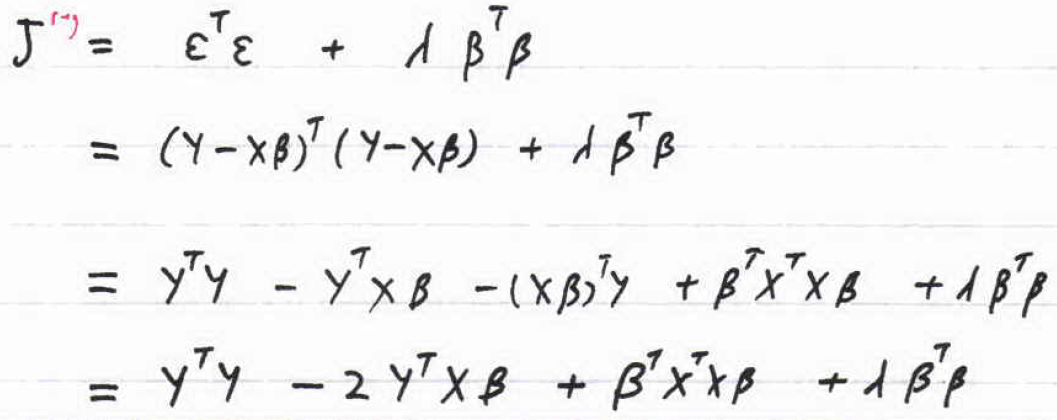 J = εᵀε + λ βᵀβ
= (Y-Xβ)ᵀ(Y-Xβ) + λ βᵀβ
= YᵀY - YᵀXβ -(Xβ)ᵀY + βᵀXᵀXβ + λβᵀβ
= YᵀY - 2YᵀXβ + βᵀXᵀXβ + λ βᵀβ